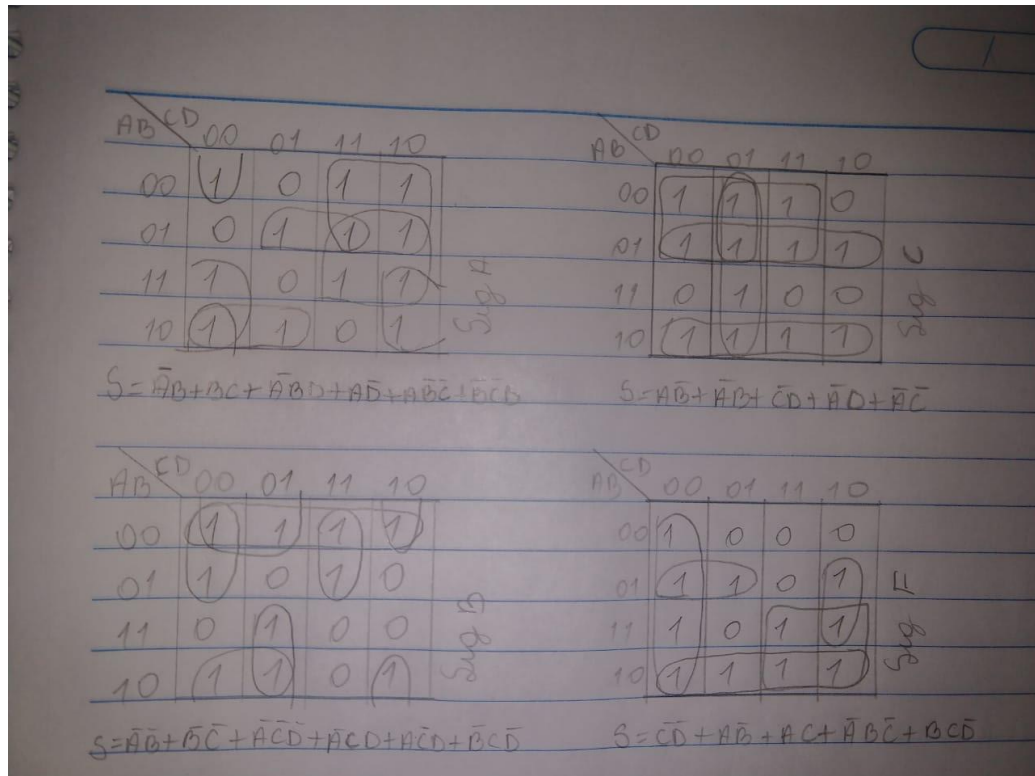 1
AB CD 00 01 11 10
00 1 0 1 1
01 0 1 1 1
11 1 0 1 1
10 1 1 0 1
Seg A
S = A̅B+BC+A̅BD+AD̅+AB̅C̅+B̅C̅D̅
AB CD 00 01 11 10
00 1 1 1 0
01 1 1 1 1
11 0 1 0 0
10 1 1 1 1
Seg C
S = AB̅+A̅B+C̅D+A̅D+A̅C̅
AB CD 00 01 11 10
00 1 1 1 1
01 1 0 1 0
11 0 1 0 0
10 1 1 0 1
Seg B
S = A̅B̅+B̅C̅+A̅C̅D̅+A̅CD+AC̅D+B̅CD̅
AB CD 00 01 11 10
00 1 0 0 0
01 1 1 0 1
11 1 0 1 1
10 1 1 1 1
Seg F
S = C̅D̅+AB̅+AC+A̅BC̅+BCD̅